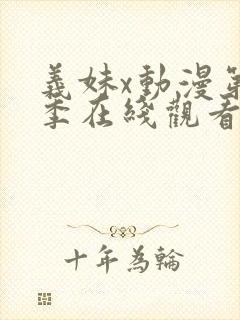 義妹x動漫第
季在綫觀看
十年為輪